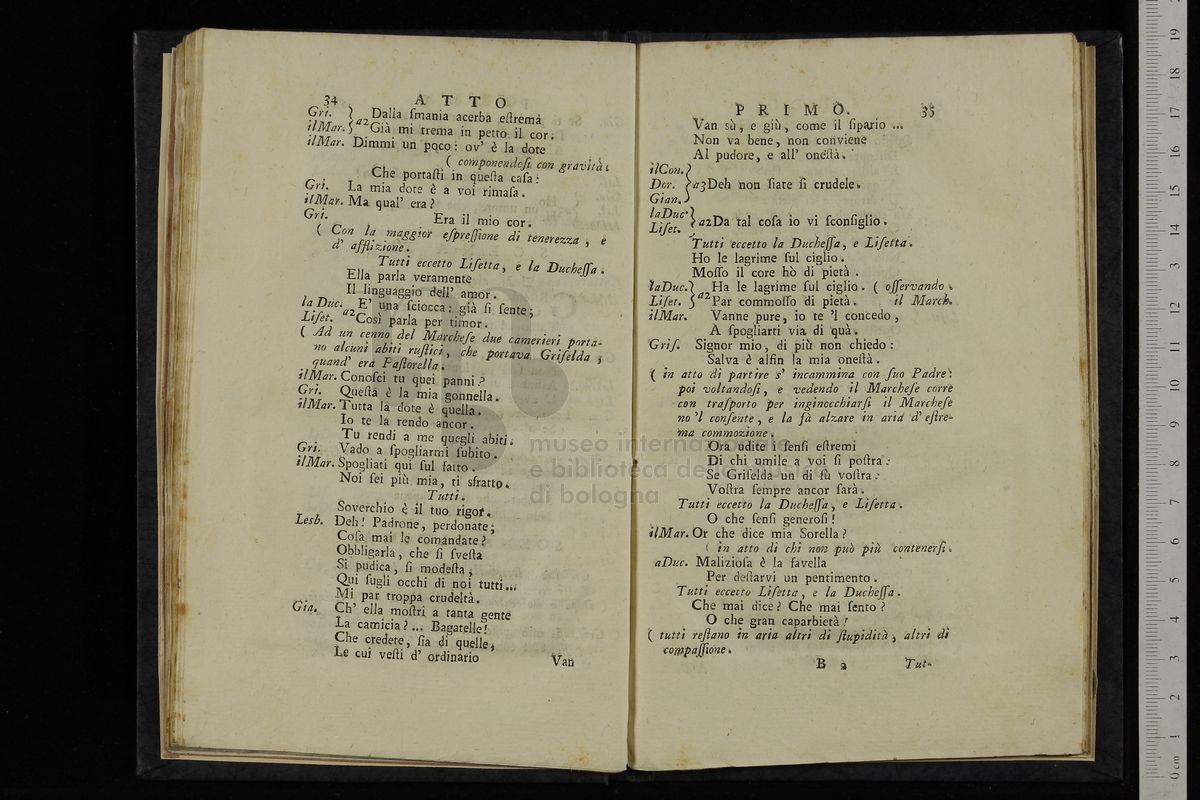 34 ATTO
Gri. } a2 Dalla ſmania acerba eſtrema
ilMar. } Già mi trema in petto il cor.
ilMar. Dimmi un poco: ov' è la dote
( componendoſi con gravità:
Che portaſti in queſta caſa:
Gri. La mia dote è a voi rimaſa.
ilMar. Ma qual' era?
Gri. Era il mio cor.
( Con la maggior eſpreſſione di tenerezza, e
d' afflizione.
Tutti eccetto Liſetta, e la Ducheſſa.
Ella parla veramente
Il linguaggio dell' amor.
la Duc. E' una ſciocca: già ſi ſente;
Liſet. a2 Così parla per timor.
( Ad un cenno del Marcheſe due camerieri porta-
no alcuni abiti ruſtici, che portava Griſelda,
quand' era Paſtorella.
ilMar. Conoſci tu quei panni?
Gri. Queſta è la mia gonnella.
ilMar. Tutta la dote è quella.
Io te la rendo ancor.
Tu rendi a me quegli abiti.
Gri. Vado a ſpogliarmi ſubito.
ilMar. Spogliati qui ſul fatto.
Noi ſei più mia, ti sfratto.
Tutti.
Soverchio è il tuo rigor.
Lesb. Deh! Padrone, perdonate;
Coſa mai le comandate?
Obbligarla, che ſi ſveſta
Si pudica, ſi modeſta,
Qui ſugli occhi di noi tutti...
Mi par troppa crudeltà.
Gia. Ch' ella moſtri a tanta gente
La camicia?... Bagatelle!
Che credete, ſia di quelle,
Le cui veſti d' ordinario
Van
PRIMO. 35
Van sù, e giù, come il ſipario ...
Non va bene, non conviene
Al pudore, e all' oneſtà.
ilCon. }
Dor. } a3 Deh non ſiate ſi crudele.
Gian. }
laDuc. } a2 Da tal coſa io vi ſconſiglio.
Liſet. }
Tutti eccetto la Ducheſſa, e Liſetta.
Ho le lagrime ſul ciglio.
Moſſo il core hò di pietà.
laDuc. } a2 Ha le lagrime ſul ciglio. ( oſſervando
Liſet. } Par commoſſo di pietà. il March.
ilMar. Vanne pure, io te 'l concedo,
A ſpogliarti via di quà.
Griſ. Signor mio, di più non chiedo:
Salva è alfin la mia oneſtà.
( in atto di partire s' incammina con ſuo Padre:
poi voltandoſi, e vedendo il Marcheſe corre
con traſporto per inginocchiarſi il Marcheſe
no 'l conſente, e la fà alzare in aria d' eſtre-
ma commozione.
Ora udite i ſenſi eſtremi
Di chi umile a voi ſi poſtra:
Se Griſelda un dì fù voſtra:
Voſtra ſempre ancor farà.
Tutti eccetto la Ducheſſa, e Liſetta.
O che ſenſi generoſi!
ilMar. Or che dice mia Sorella?
( in atto di chi non può più contenerſi.
aDuc. Malizioſa è la favella
Per deſtarvi un pentimento.
Tutti eccetto Liſetta, e la Ducheſſa.
Che mai dice? Che mai ſento?
O che gran caparbietà!
( tutti reſtano in aria altri di ſtupidità, altri di
compaſſione.
B 2 Tut-
museo internazionale
e biblioteca della musica
di bologna
0 cm 1 2 3 4 5 6 7 8 9 10 11 12 13 14 15 16 17 18 19